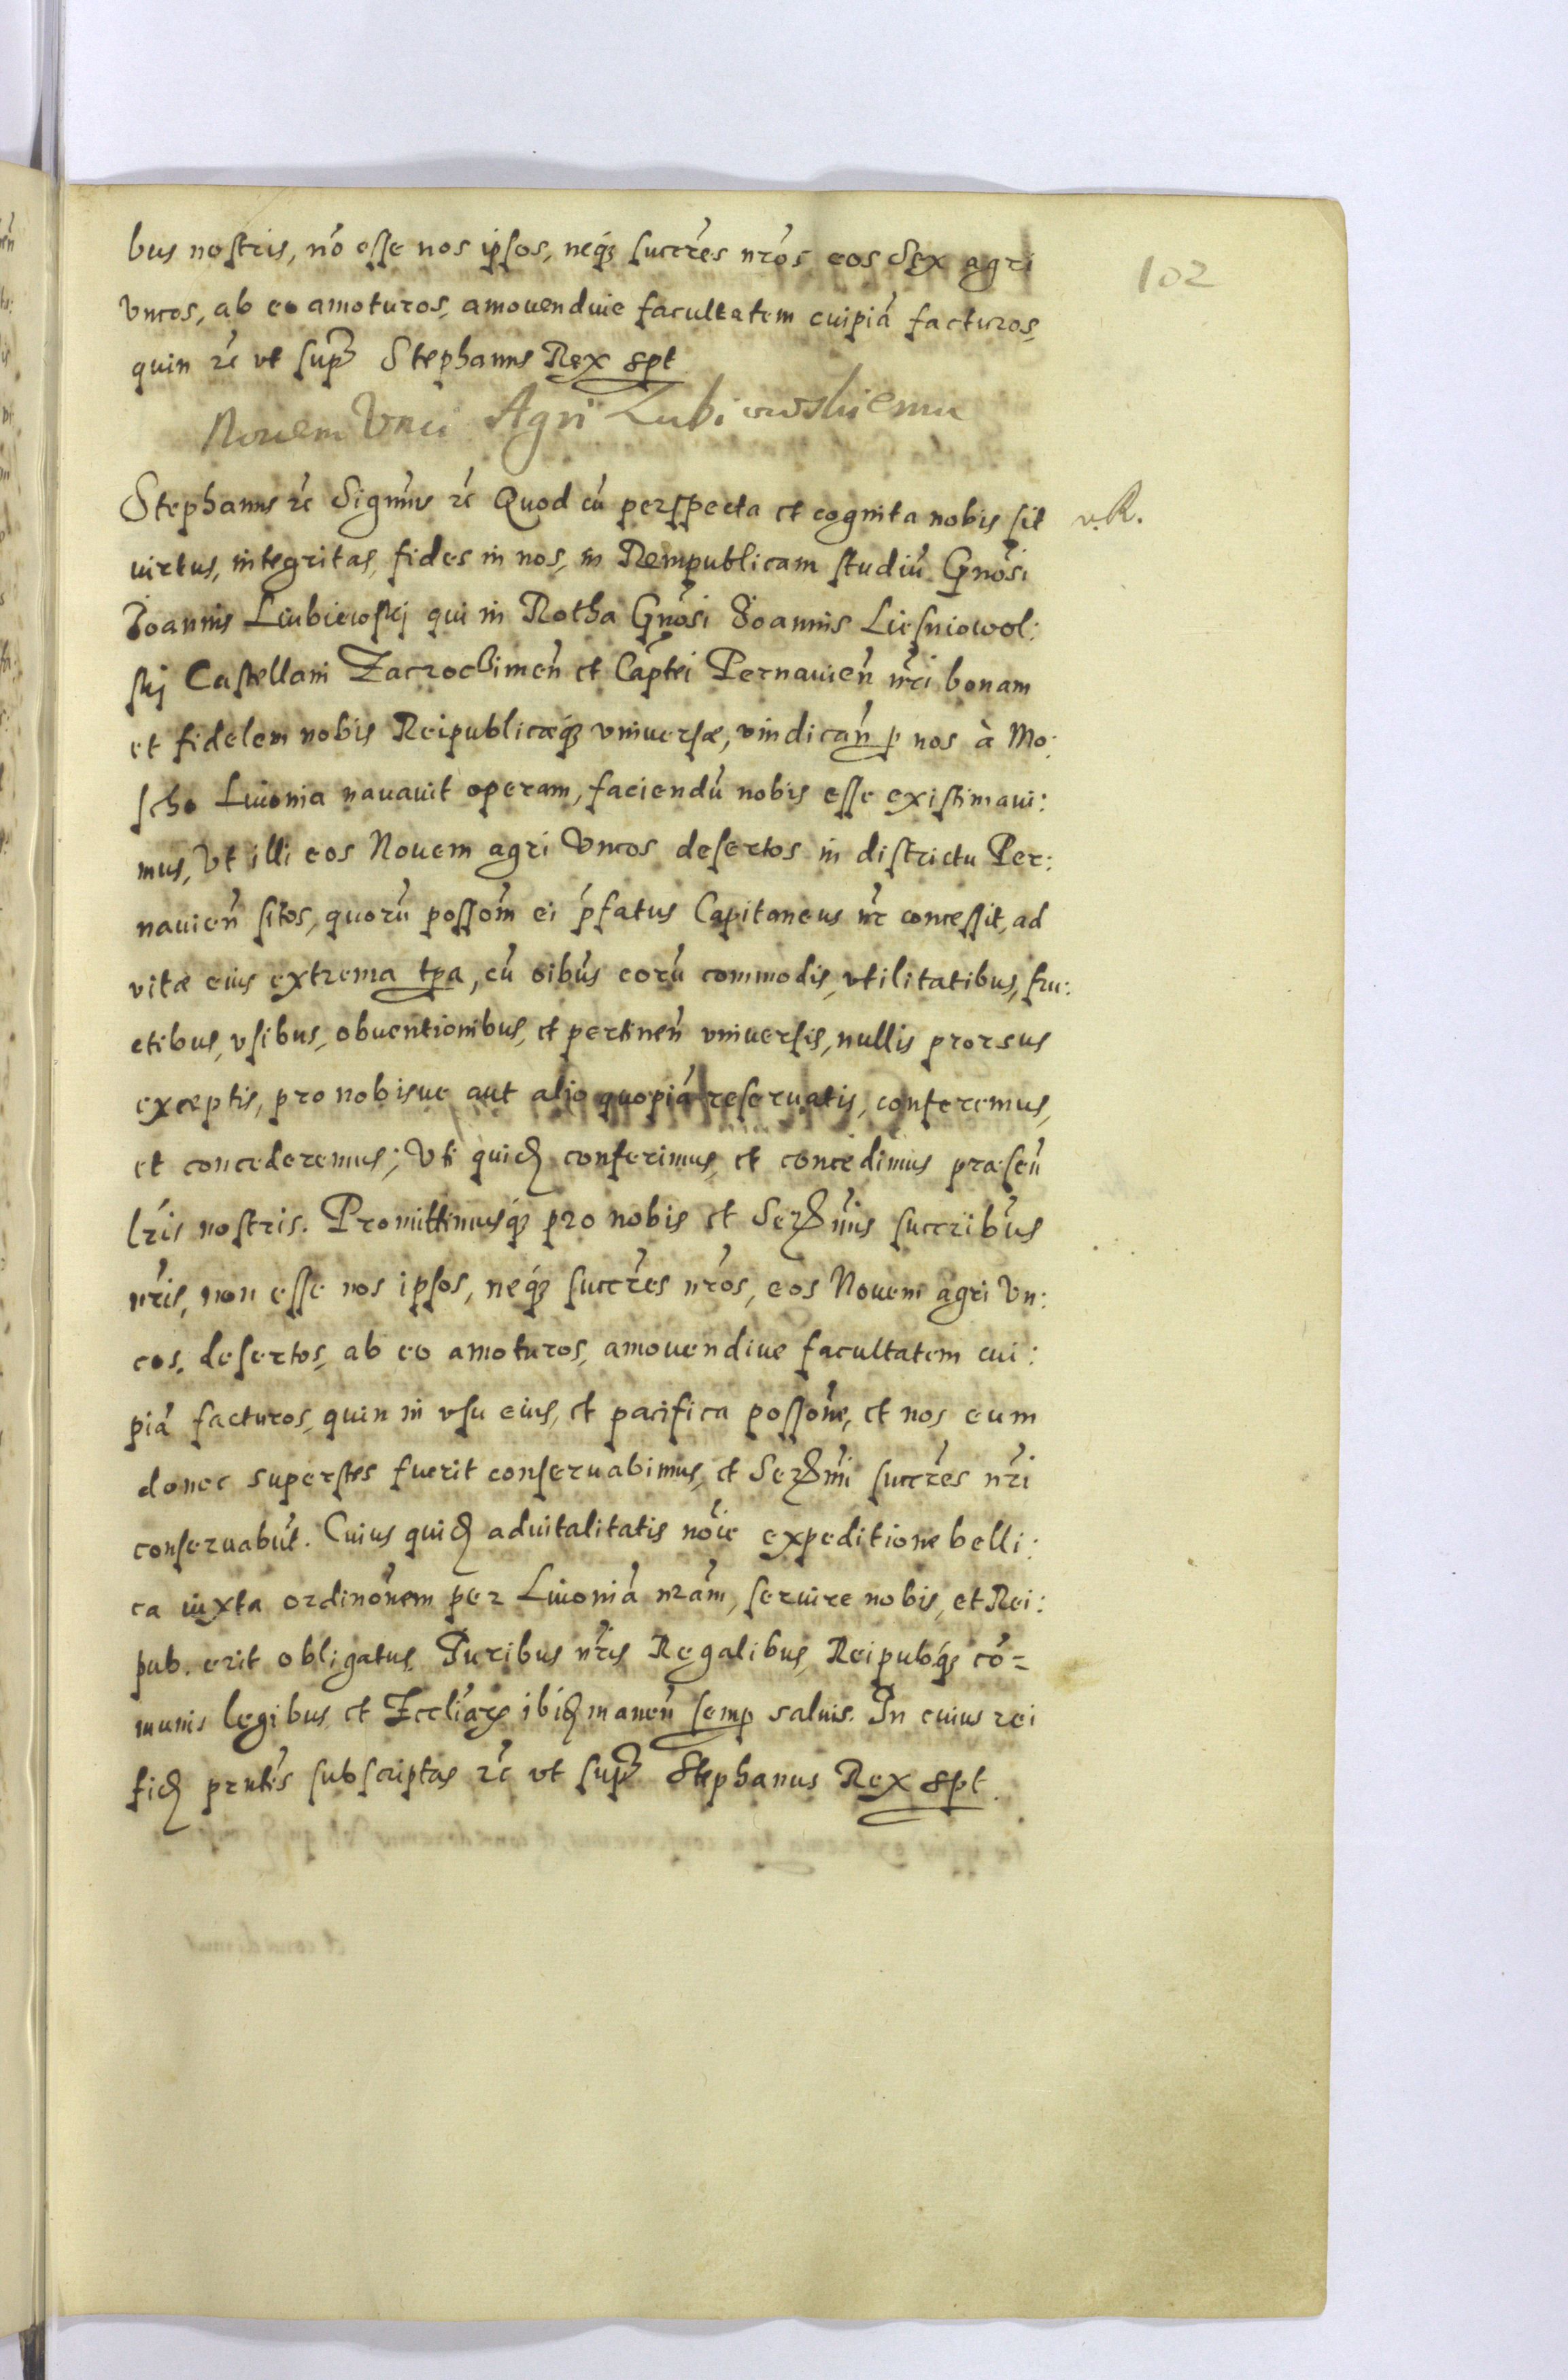 102
bus nostris, nō esse nos ipsos, neq́ȝ succr̃es nr̃os eos Sex agri
Vncos, ab eo amoturos, amouendiue facultatem cuipiā facturos,
quin rc̃ vt sup̃ Stephanus Rex sp̱t
Nouem Vnci Agri Lubiewskiemu
Stephanus rc̃ Signm̃s rc̃ Quod cū perspecta et cognita nobis sit
v. R.
virtus, integritas, fides in nos, in Rempublicam studiū Gñosi
Joannis Liubiewskj qui in Rotha Gñosi Joannis Liesniowol:
skj Castellani Zacroczimeñ et Capt̃ei Pernauieñ nr̃i bonam
et fidelem nobis Reipublicæq́ȝ vniuersæ, vindicañ p̱ nos à Mo:
scho Liuonia nauauit operam, faciendū nobis esse existimaui:
mus, Vt illi eos Nouem agri Vncos desertos in districtu Per:
nauieñ sitos, quorū possom̃ ei p̃fatus Capitaneus nr̃ concessit, ad
vitæ eius extrema tp̱a, cū oibũs eorū commodis, vtilitatibus, fru:
ctibus, vsibus, obuentionibus, et pertineñ vniuersis, nullis prorsus
exceptis, pro nobisue aut alio quopiā reseruatis, conferemus,
et concederemus; Vti quidȝ conferimus, et concedimus præseñ
lr̃is nostris. Promittimusq́ȝ pro nobis et Serȝmis succr̃ibus
nr̃is, non esse nos ipsos, neq́ȝ succr̃es nr̃os, eos Nouem agri Vn:
cos, desertos, ab eo amoturos, amouendiue facultatem cui:
piā facturos, quin in vsu eius, et pacifica possōne, et nos eum
donec superstes fuerit conseruabimus, et Serȝmi succr̃es nr̃i
conseruabūt. Cuius quidȝ aduitalitatis noĩe expeditione belli:
ca iuxta ordinōnem per Liuoniā nr̃am, seruire nobis, et Rei:
pub. erit obligatus, Juribus nr̃is Regalibus, Reipubq́ȝ cō=
munis legibus, et Eccliãrȝ ibidȝ maneñ semp̱ saluis. In cuius rei
fidȝ prñtes subscriptas rc̃ vt sup̃ Stephanus Rex sp̱t.